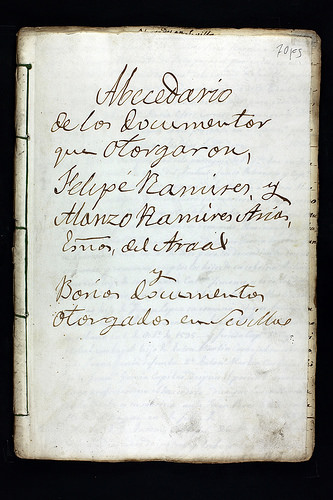 70 pes
Abecedario
de los documentos
que otorgaron,
Felipé Ramires, y
Alonzo Ramires Arias,
Esnos, del Araal
y
Barios documentos
otorgados en Sevilla